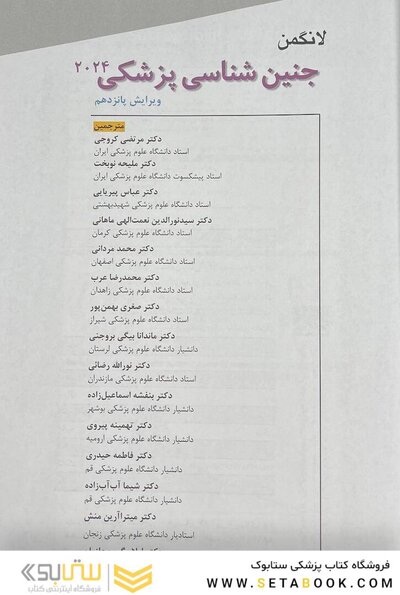 لانگمن
جنین شناسی پزشکی ۲۰۲۴
ویرایش پانزدهم
مترجمین
دکتر مرتضی کروجی
استاد دانشگاه علوم پزشکی ایران
دکتر ملیحه نوبخت
استاد پیشکسوت دانشگاه علوم پزشکی ایران
دکتر عباس پیریایی
استاد دانشگاه علوم پزشکی شهیدبهشتی
دکتر سیدنورالدین نعمت‌الهی ماهانی
استاد دانشگاه علوم پزشکی کرمان
دکتر محمد مردانی
استاد دانشگاه علوم پزشکی اصفهان
دکتر محمدرضا عرب
استاد دانشگاه علوم پزشکی زاهدان
دکتر صغری بهمن‌پور
استاد دانشگاه علوم پزشکی شیراز
دکتر ماندانا بیگی بروجنی
دانشیار دانشگاه علوم پزشکی لرستان
دکتر نورالله رضائی
استاد دانشگاه علوم پزشکی مازندران
دکتر بنفشه اسماعیل‌زاده
دانشیار دانشگاه علوم پزشکی بوشهر
دکتر تهمینه پیروی
دانشیار دانشگاه علوم پزشکی ارومیه
دکتر فاطمه حیدری
دانشیار دانشگاه علوم پزشکی قم
دکتر شیما آب‌آب‌زاده
دانشیار دانشگاه علوم پزشکی قم
دکتر میترا آرین منش
استادیار دانشگاه علوم پزشکی زنجان
فروشگاه کتاب پزشکی ستابوک
WWW.SETABOOK.COM
ستابوک
فروشگاه اینترنتی کتاب